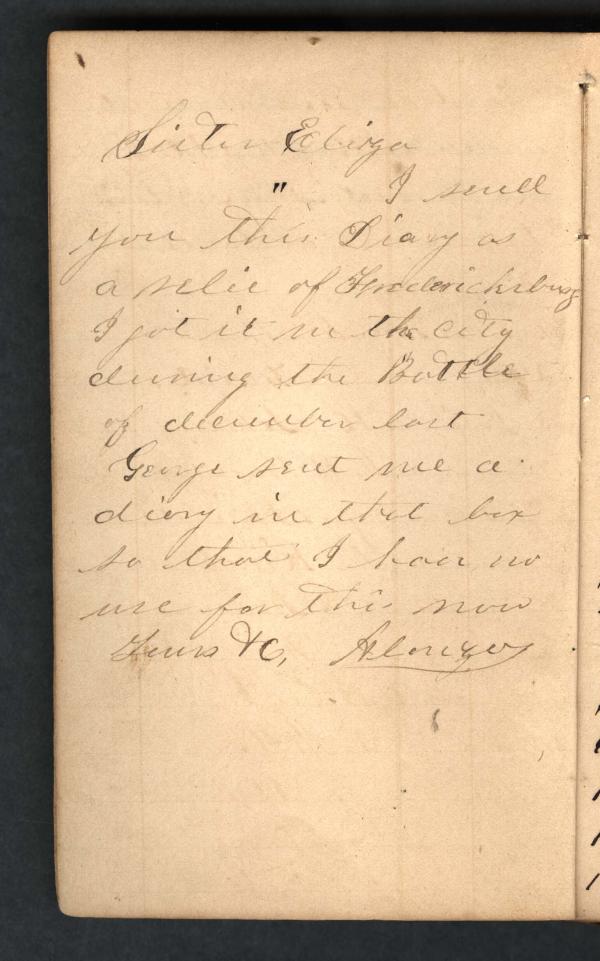 Sister Eliza
" I send
you this Diary as
a relic of Fredericksburg
I got it in the city
during the Battle
of december last
George sent me a
diary in that box
so that I have no
use for this now
Yours &C, Alonzo